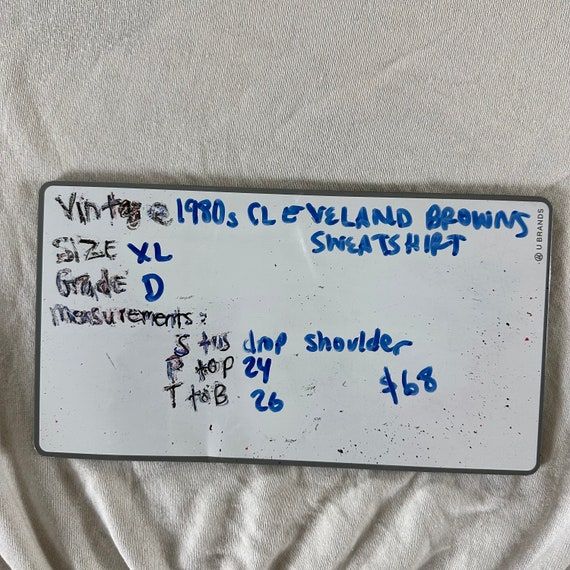 Vintage 1980s CLEVELAND BROWNS
SWEATSHIRT
SIZE XL
Grade D
Measurements:
S to S drop shoulder
P to P 24
T to B 26
$68
U BRANDS